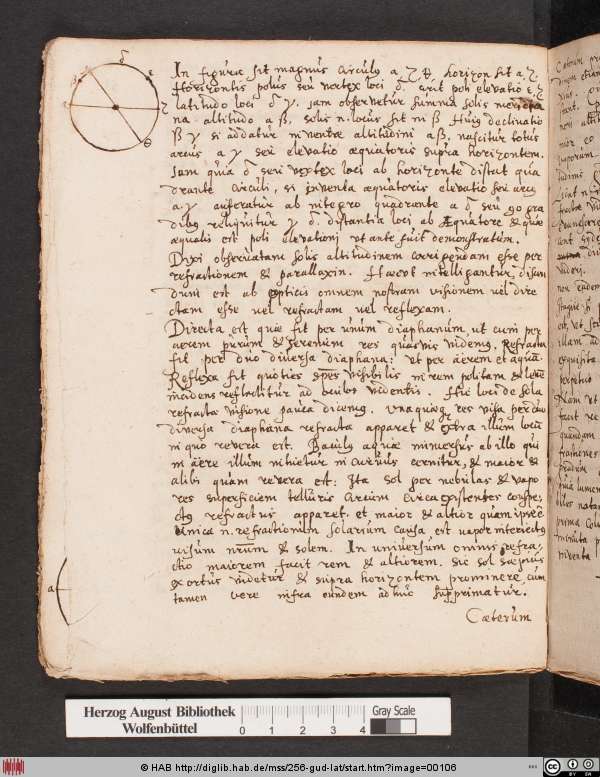 In figura sit magnus circulus α ζ θ, horizon sit α ζ.
Horizontis polus seu vertex loci δ, erit poli elevatio ε ζ
latitudo loci δ γ. iam observetur summa solis meridia
na altitudo α β, solis n. locus sit in β. Huius declinatio
β γ si addatur inventae altitudini α β, nascitur totus
arcus α γ seu elevatio aequatoris supra horizontem.
Iam quia δ seu vertex loci ab horizonte distat qua
drante circuli, si inventa aequatoris elevatio seu arcus
α γ auferatur ab integro quadrante α δ seu 90 gra
dibus relinquitur γ δ. distantia loci ab Aequatore & quae
aequalis est poli elevationi ut ante fuit demonstratum.
Dixi observatam solis altitudinem corrigendam esse per
refractionem & parallaxin. Haec ut intelligantur, discen
dum est ab opticis omnem nostram visionem vel dire
ctam esse vel refractam vel reflexam.
Directa est quae fit per unum diaphanum, ut cum per
aerem purum & serenum res quasvis videmus. Refracta
fit per duo diversa diaphana, ut per aerem et aquam.
Reflexa fit quoties species visibilis in rem politam & leuem
incidens reflectitur ad oculos videntis. Hic loci de sola
refracta visione pauca dicemus. Unaquaeque res visa per duo
diversa diaphana refracta apparet & extra illum locum
in quo revera est. Baculus aquae immersus ab illo qui
in aere illum intuetur incurvus cernitur, & maior &
alibi quam revera est: Ita sol per nebulas & vapo
res superficiem telluris circum circa existentes conspe
ctus refractus apparet, et maior & altior quam ipse est
Unica n. refractionum solarium causa est vapor interiectus
visum nostrum & solem. In universum omnis refra-
ctio maiorem facit rem & altiorem. sic sol saepius
exortus videtur & supra horizontem prominere, cum
tamen vere infra eundem adhuc supprimatur.
Caeterum
Herzog August Bibliothek
Wolfenbüttel
0 1 2 3 4
Gray Scale
© HAB http://diglib.hab.de/mss/256-gud-lat/start.htm?image=00106